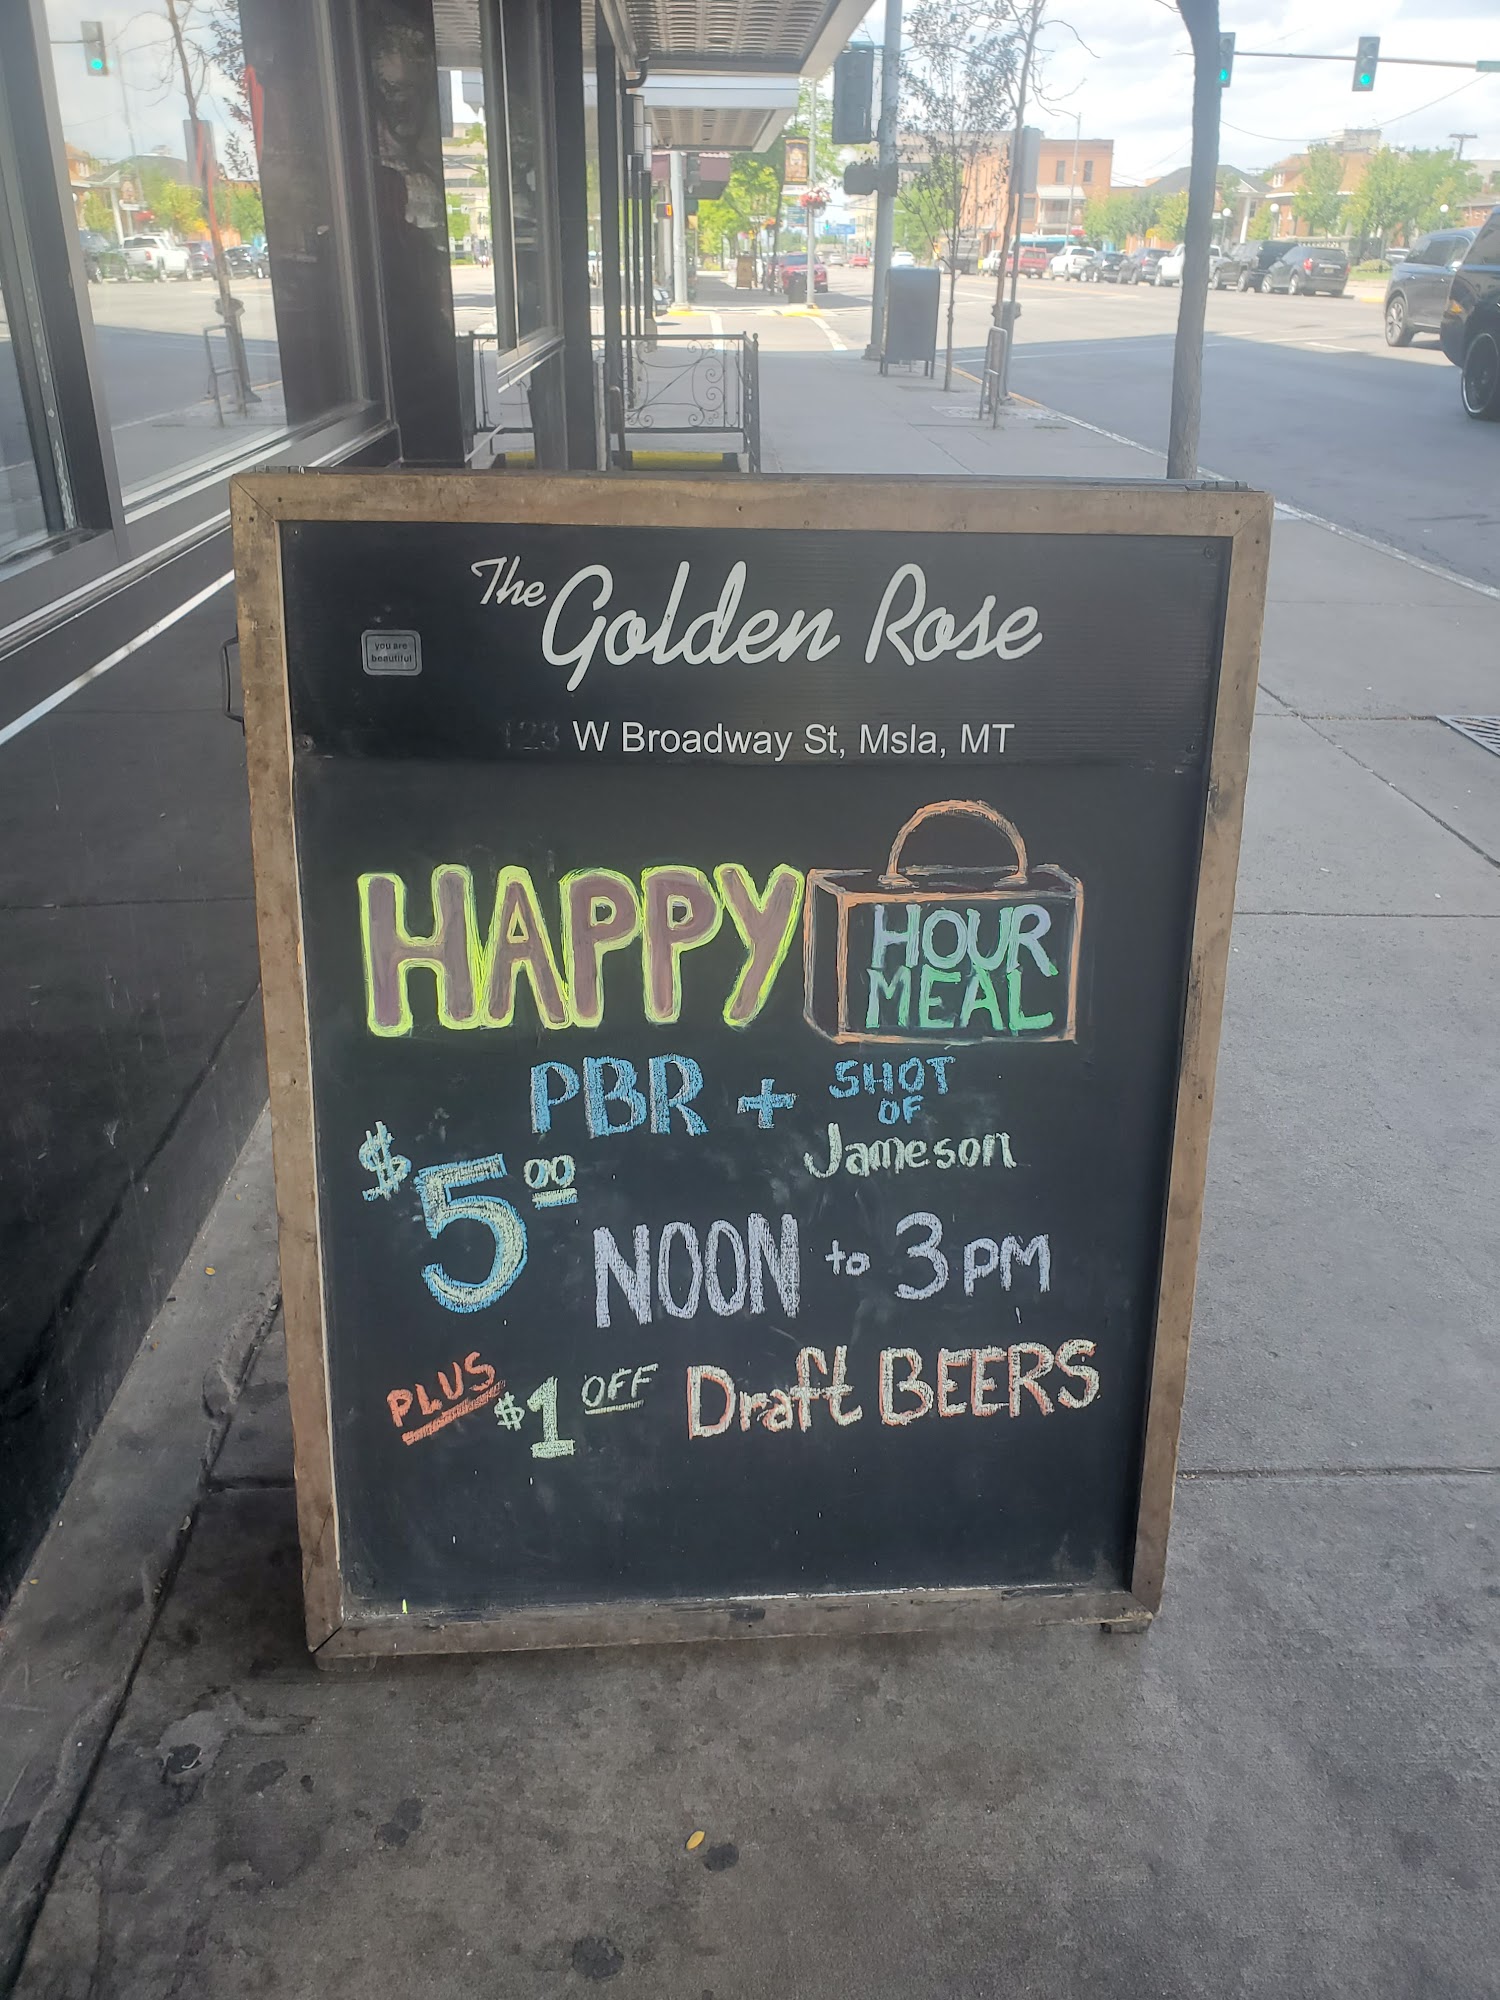 The Golden Rose
you are
beautiful
123 W Broadway St, Msla, MT
HAPPY HOUR
MEAL
PBR + SHOT
OF
Jameson
$5.00
NOON to 3PM
PLUS $1 OFF Draft BEERS